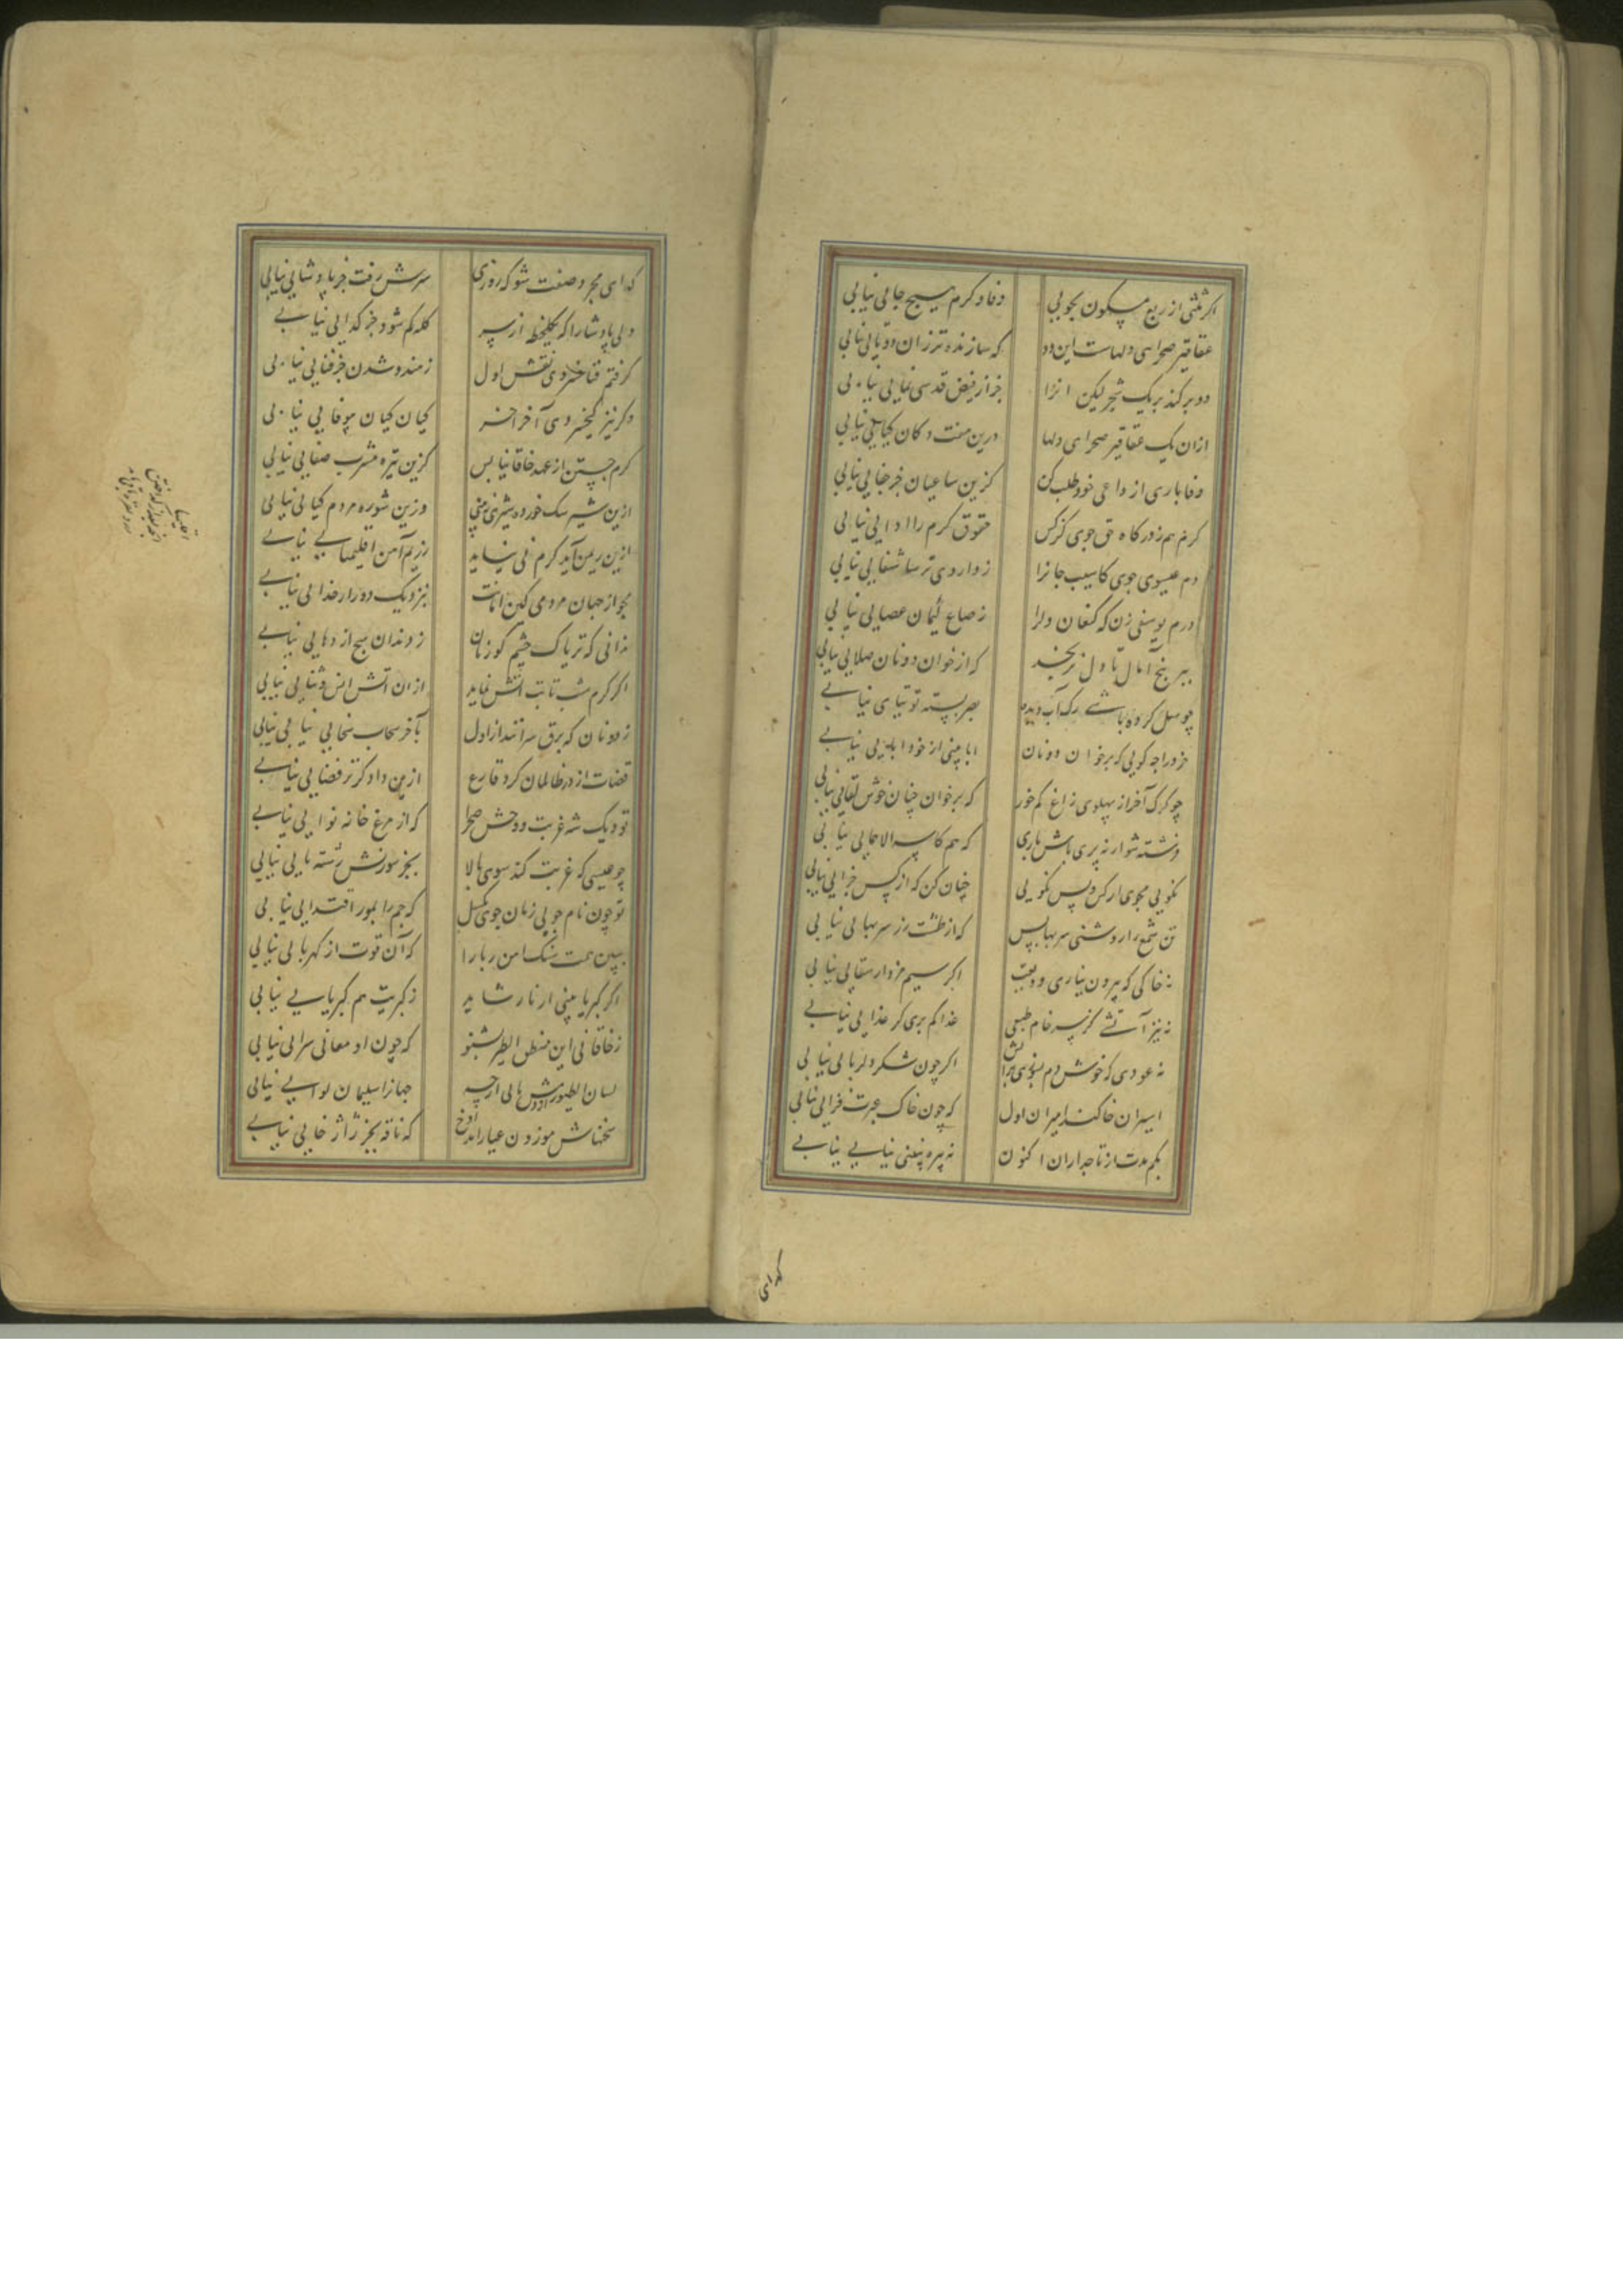 اگر ثلثی از ربع مسکون بجویی
وفا و کرم هیچ جایی نیابی
عقاقیر صحرای دلهاست این دو
که سازنده‌تر زان دوایی نیابی
دو برگند بر یک شجر لیکن آنرا
جز از فیض قدسی نمایی نیابی
ازان یک عقاقیر صحرای دلها
درین هفت دکان کیایی نیابی
وفا باری از داعی خود طلب کن
کزین ساعیان جز جفایی نیابی
کرم هم ز درگاه حق جوی کز کس
حقوق کرم را ادایی نیابی
دم عیسوی جوی کاسیب جانرا
ز داروی ترسا شفایی نیابی
درم یوسفی زن که کنعان دلرا
ز صاع لئیمان عصایی نیابی
ببر بیخ آمال تا دل نرنجد
که از خوان دونان صلایی نیابی
چو میل کرده باشی رگ آب دیده
بصر بسته توتیای نیابی
خود راجه گویی که بر خوان دونان
ابا بینی از خود ابایی نیابی
چو گرگ آخر از پهلوی زاغ کم خور
که بر خوان چنان خوش لقایی نیابی
فرشته شو ار نه پری باش باری
که هم کاسه الا همایی نیابی
نکویی مجوی از کس و پس نکویی
چنان کن که از کس جزایی نیابی
تن شمع را روشنی سر بها بس
که از طشت زر سر بهایی نیابی
نه خاکی که بیرون نیاری ودیعت
اگر سیم مزدار سقایی نیابی
نه نیز آتشی کز سر خام طبعی
غذا کم بری گر غذایی نیابی
نه عودی که خوش دم بسوزی بر آتش
اگر چون شکر دلربایی نیابی
اسیران خاکند امیران اول
که چون خاک عبرت فزایی نیابی
بکم مدت از تاجداران اکنون
نه بیره نه بینی نیایی نیابی
گدای
گدای مجرد صفت شو که روزی
سرش رفت جز پادشایی نیابی
ولی پادشا را که یکلحظه از سر
کله گم شود جز گدایی نیابی
گرفتم فناخسروی نقش اول
ز مندوشدن جز فنایی نیابی
وگر نیز کیخسروی آخر آخر
کیان کیان موفایی نیابی
کرم جستن از عهد خاقانیا بس
کزین تیره مشرب صفایی نیابی
ازین شیر سگ خورده شیری نبینی
وزین شوره مردم گیایی نیابی
ازین ریمن آید کرم نی نیاید
ز ریم آهن اقلیمیایی نیابی
مجو از جهان مردمی کین امانت
بنزدیک دور از خدایی نیابی
ندانی که تریاک چشم گوزنان
ز دندان هیچ اژدهایی نیابی
اگر کرم شبتاب آتش نماید
ازان آتش انس و ثنایی نیابی
ز دونان که برق سرانند از اول
بآخر سحاب سخایی نیابی نیابی
قضات از در ظالمان کرد قارع
ازین دادگرتر قضایی نیابی
تو و یک شه غربت و وحش صحرا
که از مرغ خانه نوایی نیابی
چو عیسی که غربت کند سوی بالا
بجز سوزنش رشته تایی نیابی
تو چون نام جویی ز نان جوی بگسل
که جم را بمور اقتدایی نیابی
ببین همت سنگ آهن ربا را
که آن قوت از کهربایی نیابی
اگر کبریا بینی از نار شاید
ز کبریت هم کبریایی نیابی
ز خاقانی این منطق الطیر بشنو
که چون او معانی سرایی نیابی
لسان الطیور از دمش یابی ارچه
جهان را سلیمان لوایی نیابی
سخنهاش موزون عیار آمد آوخ
که ناقد بجز ژاژ خایی نیابی
اقلیمیا